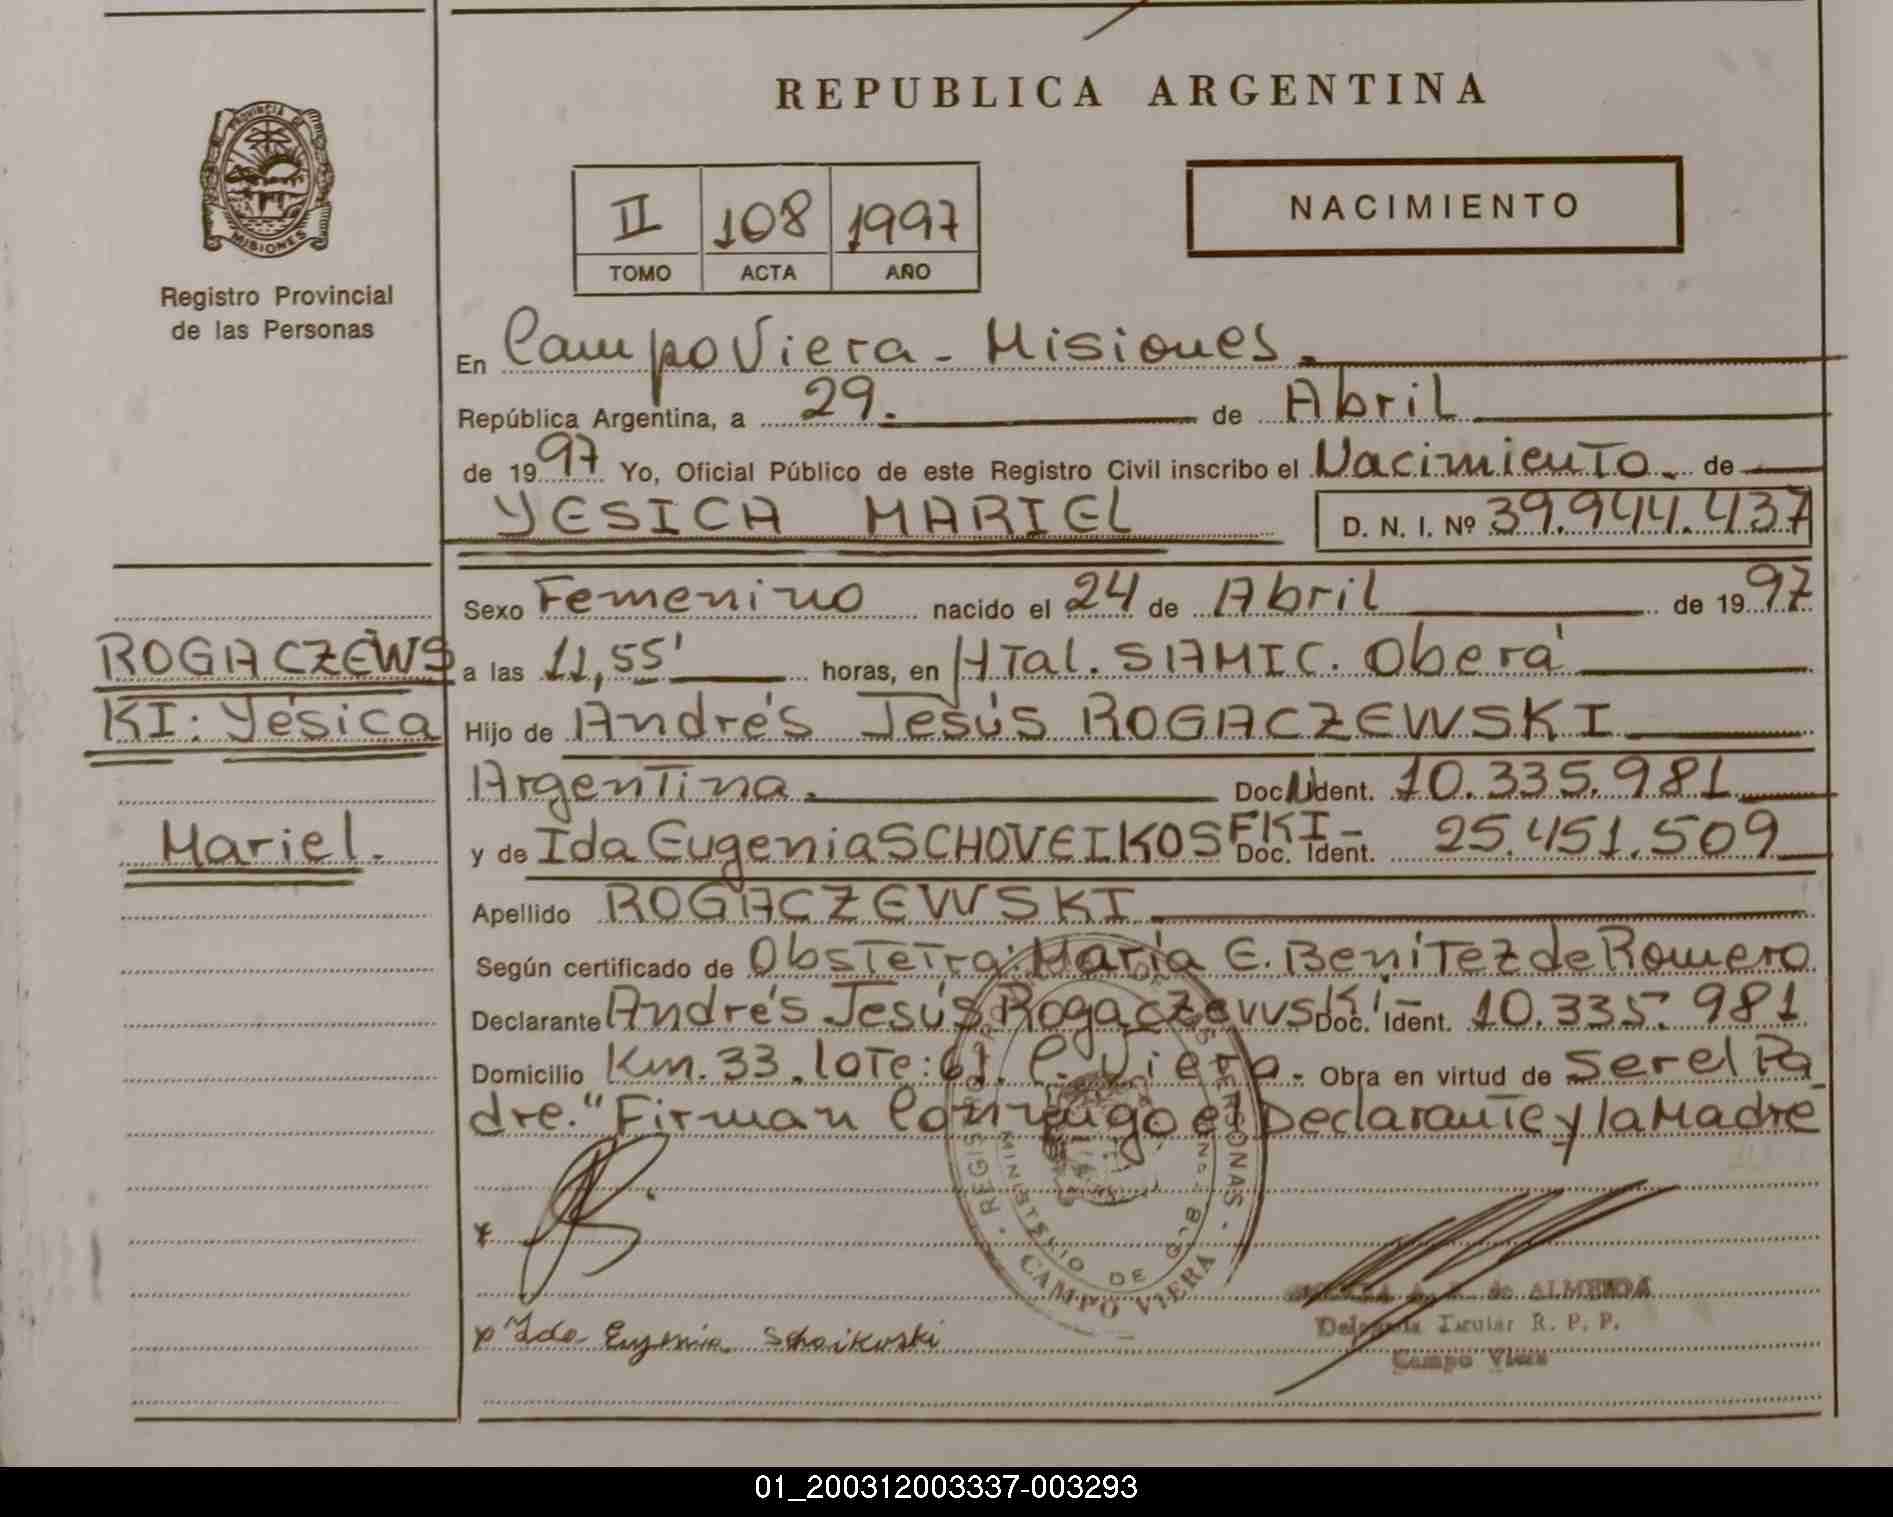 REPUBLICA ARGENTINA
PROVINCIA DE
MISIONES
Registro Provincial
de las Personas
II 108 1997
TOMO ACTA AÑO
NACIMIENTO
En Campo Viera - Misiones.
República Argentina, a 29. de Abril
de 1997 Yo, Oficial Público de este Registro Civil inscribo el Nacimiento de
YESICA MARIEL D. N. I. Nº 39.944.437
Sexo Femenino nacido el 24 de Abril de 1997
a las 11,55' horas, en HTal. SAMIC. Oberá
Hijo de Andrés Jesús ROGACZEWSKI
Argentina. Doc. Ident. 10.335.981
y de Ida Eugenia SCHOVEIKOSFKI - Doc. Ident. 25.451.509
Apellido ROGACZEWSKI
Según certificado de Obstetra: María E. Benitez de Romero
Declarante Andrés Jesús Rogaczewski - Doc. Ident. 10.335.981
Domicilio Km. 33. lote: 61. C. Viera. Obra en virtud de ser el Pa
dre." Firman Conmigo el Declarante y la Madre
ROGACZEWS
KI: Yésica
Mariel.
x
x Ida Eugenia Schoikoski
MINISTERIO DE
CAMPO VIERA
de ALMEIDA
Titular R. P. P.
Campo Viera
01_200312003337-003293